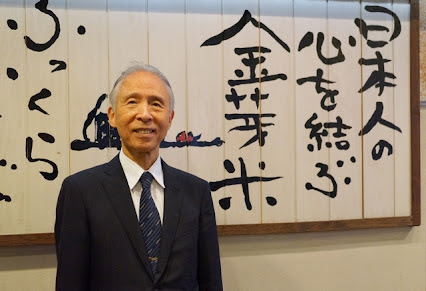 日本人の
心を結ぶ
金芽米
ふっくら